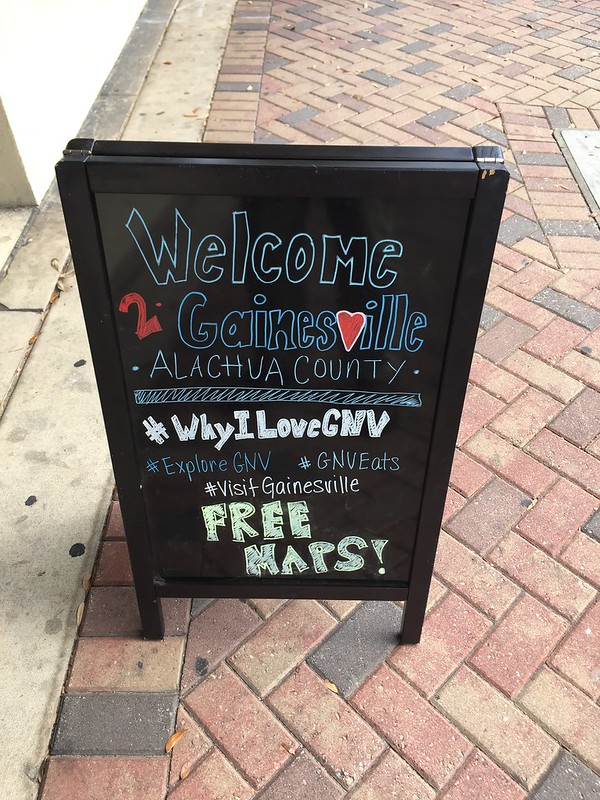 Welcome
2 Gainesville
• ALACHUA COUNTY •
#WhyILoveGNV
#ExploreGNV #GNVEats
#VisitGainesville
FREE
MAPS!